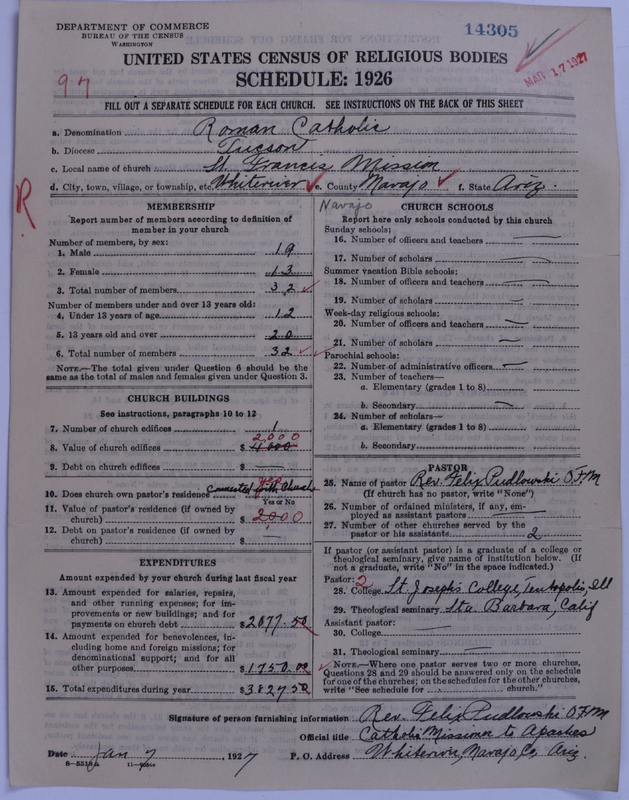 DEPARTMENT OF COMMERCE
BUREAU OF THE CENSUS
WASHINGTON
14305
MAR 17 1927
UNITED STATES CENSUS OF RELIGIOUS BODIES
SCHEDULE: 1926
97
FILL OUT A SEPARATE SCHEDULE FOR EACH CHURCH. SEE INSTRUCTIONS ON THE BACK OF THIS SHEET
a. Denomination Roman Catholic
b. Diocese Tucson
c. Local name of church St. Francis Mission
d. City, town, village, or township, etc. Whiteriver e. County Navajo f. State Ariz.
R
MEMBERSHIP
Report number of members according to definition of
member in your church
Number of members, by sex:
1. Male 19
2. Female 13
3. Total number of members 32
Number of members under and over 13 years old:
4. Under 13 years of age 12
5. 13 years old and over 20
6. Total number of members 32
NOTE.—The total given under Question 6 should be the
same as the total of males and females given under Question 3.
CHURCH BUILDINGS
See instructions, paragraphs 10 to 12
7. Number of church edifices 1
2,000
8. Value of church edifices $ 4,000
9. Debt on church edifices $ —
yes
10. Does church own pastor's residence connected with Church
Yes or No
11. Value of pastor's residence (if owned by
church) $ 2000
12. Debt on pastor's residence (if owned by
church) $ —
EXPENDITURES
Amount expended by your church during last fiscal year
13. Amount expended for salaries, repairs,
and other running expenses; for im-
provements or new buildings; and for
payments on church debt $ 2077.50
14. Amount expended for benevolences, in-
cluding home and foreign missions; for
denominational support; and for all
other purposes $ 1750.00
15. Total expenditures during year $ 3827.50
Navajo
CHURCH SCHOOLS
Report here only schools conducted by this church
Sunday schools:
16. Number of officers and teachers —
17. Number of scholars —
Summer vacation Bible schools:
18. Number of officers and teachers —
19. Number of scholars —
Week-day religious schools:
20. Number of officers and teachers —
21. Number of scholars —
Parochial schools:
22. Number of administrative officers —
23. Number of teachers—
a. Elementary (grades 1 to 8)
b. Secondary —
24. Number of scholars—
a. Elementary (grades 1 to 8)
b. Secondary
PASTOR
25. Name of pastor Rev. Felix Pudlowski O.F.M
(If church has no pastor, write "None")
26. Number of ordained ministers, if any, em-
ployed as assistant pastors —
27. Number of other churches served by the
pastor or his assistants 2
If pastor (or assistant pastor) is a graduate of a college or
theological seminary, give name of institution below. (If
not a graduate, write "No" in the space indicated.)
Pastor: 2
28. College St. Joseph's College, Teutopolis, Ill
29. Theological seminary Sta. Barbara, Calif
Assistant pastor:
30. College —
31. Theological seminary —
NOTE.—Where one pastor serves two or more churches,
Questions 28 and 29 should be answered only on the schedule
for one of the churches; on the schedules for the other churches,
write "See schedule for church."
Signature of person furnishing information Rev. Felix Pudlowski O.F.M
Official title Catholic Missionr to Apaches
Date Jan 7, 1927 P. O. Address Whiteriver, Navajo Co. Ariz.